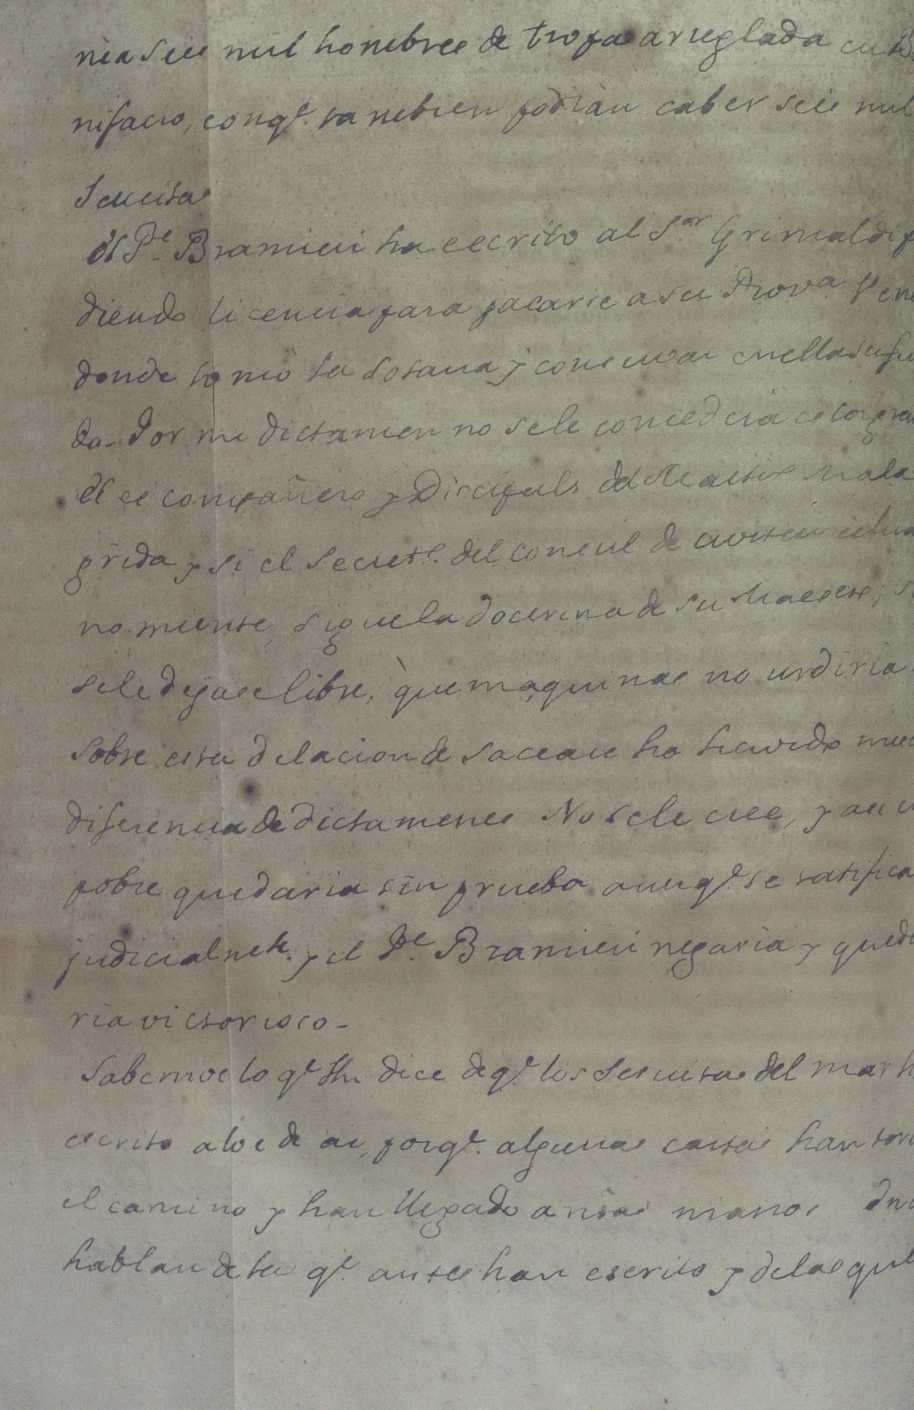 nia seis mil hombres de tropas arreglada en
nifacio, conqe. tambien podrian caber seis mil
Jesuitas
El Pe. Bramieri ha escrito al Sor Grimaldi p
diendo licencia para pasarse a su Prova. Ven
donde tomò la sotana, y conservar en ella su
da. Por mi dictamen no se le concederia
El es compañero, y Discipulo del Maestro Mala
grida, y si el Secreto. del Consul de
no miente, sigue la doctrina de su Maestro; s
se le dejase libre, què maquinas no urdiria
Sobre esta delacion de Saceau ha havido muc
diferencia de dictamenes No se le cree, y aun
pobre quedaria sin prueba aunqe. se ratifica
judicialmte. y el Pe. Bramieri negaria, y queda
ria victorioso -
Sabemos lo qe. Vm. dice de qe. los Jesuitas del mar h
escrito a los de ai, porqe. algunas cartas han
el camino, y han llegado a nras manos
hablan de las qe. antes han escrito, y de las que